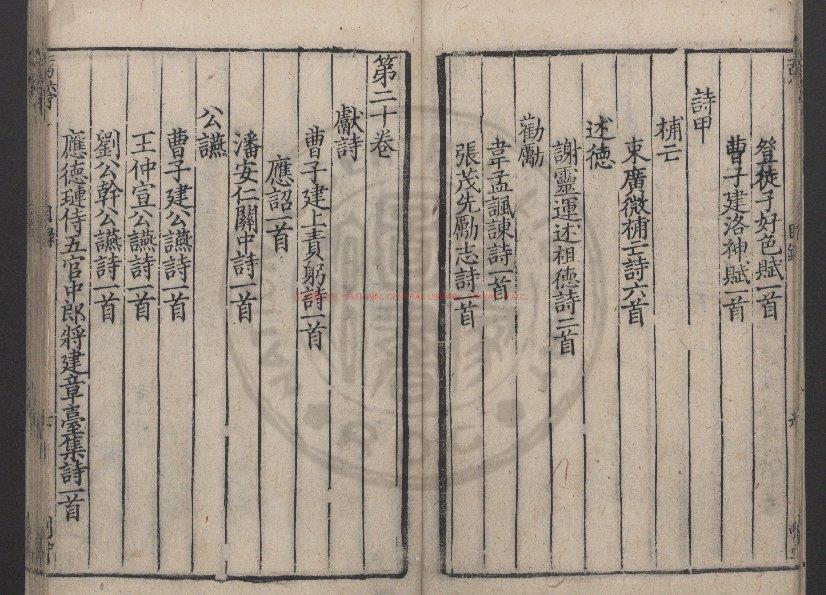 登徒子好色賦一首
曹子建洛神賦一首
詩甲
補亡
束廣微補亡詩六首
述德
謝靈運述祖德詩二首
勸勵
韋孟諷諫詩一首
張茂先勵志詩一首
第二十卷
獻詩
曹子建上責躬詩一首
應詔一首
潘安仁關中詩一首
公讌
曹子建公讌詩一首
王仲宣公讌詩一首
劉公幹公讌詩一首
應德璉侍五官中郎將建章臺集詩一首